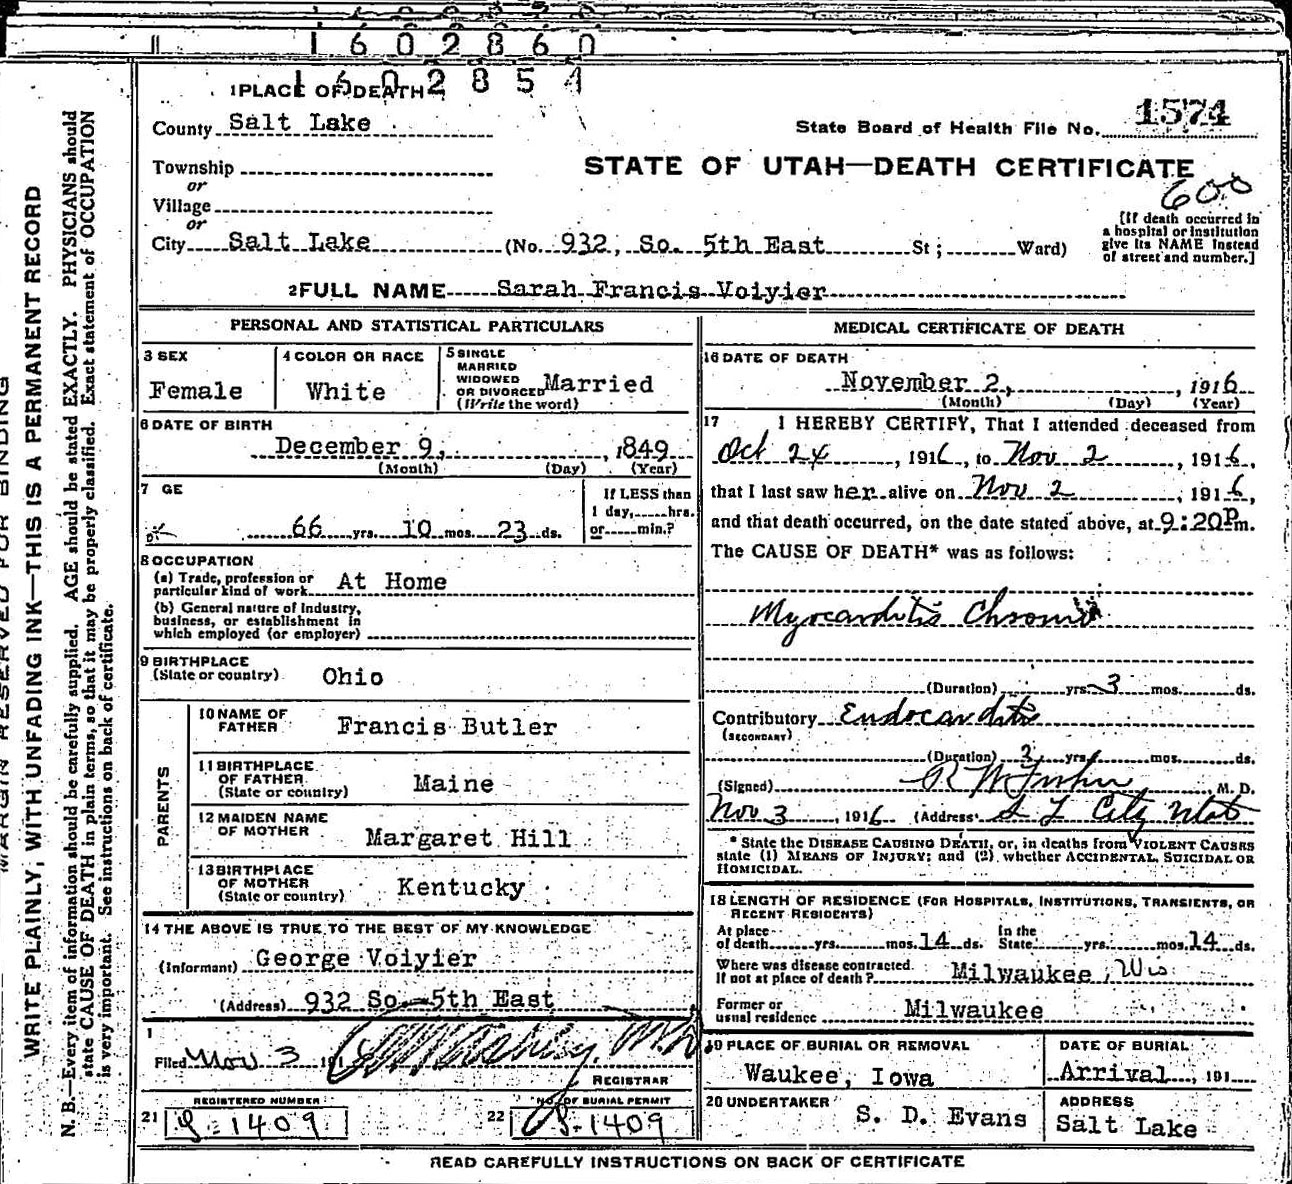 1602860
1602854
1 PLACE OF DEATH
County Salt Lake
State Board of Health File No. 1574
Township
or
STATE OF UTAH—DEATH CERTIFICATE
600
Village
or
City Salt Lake (No. 932, So. 5th East St; Ward)
[If death occurred in
a hospital or institution
give its NAME instead
of street and number.]
2 FULL NAME Sarah Francis Voiyier
PERSONAL AND STATISTICAL PARTICULARS
3 SEX
Female
4 COLOR OR RACE
White
5 SINGLE
MARRIED
WIDOWED
OR DIVORCED Married
(Write the word)
6 DATE OF BIRTH
December 9, , 1849
(Month) (Day) (Year)
7 GE
66 yrs. 10 mos. 23 ds.
If LESS than
1 day, hrs.
or min.?
8 OCCUPATION
(a) Trade, profession or
particular kind of work At Home
(b) General nature of Industry,
business, or establishment in
which employed (or employer)
9 BIRTHPLACE
(State or country) Ohio
PARENTS
10 NAME OF
FATHER Francis Butler
11 BIRTHPLACE
OF FATHER
(State or country) Maine
12 MAIDEN NAME
OF MOTHER Margaret Hill
13 BIRTHPLACE
OF MOTHER
(State or country) Kentucky
14 THE ABOVE IS TRUE TO THE BEST OF MY KNOWLEDGE
(Informant) George Voiyier
(Address) 932 So. 5th East
Filed Nov 3 191
REGISTRAR
REGISTERED NUMBER
21 1409
NO. OF BURIAL PERMIT
22 1409
MEDICAL CERTIFICATE OF DEATH
16 DATE OF DEATH
November 2, , 1916
(Month) (Day) (Year)
17 I HEREBY CERTIFY, That I attended deceased from
Oct 24 , 1916, to Nov 2 , 1916,
that I last saw her alive on Nov 2 , 1916,
and that death occurred, on the date stated above, at 9:20P m.
The CAUSE OF DEATH* was as follows:
Myocarditis Chronic
(Duration) yrs. 3 mos. ds.
Contributory Endocarditis
(SECONDARY)
(Duration) 2 yrs. mos. ds.
(Signed) M. D.
Nov 3 , 1916 (Address) S L City Utah
* State the DISEASE CAUSING DEATH, or, in deaths from VIOLENT CAUSES
state (1) MEANS OF INJURY; and (2) whether ACCIDENTAL, SUICIDAL OR
HOMICIDAL.
18 LENGTH OF RESIDENCE (FOR HOSPITALS, INSTITUTIONS, TRANSIENTS, OR
RECENT RESIDENTS)
At place
of death yrs. mos. 14 ds.
In the
State yrs. mos. 14 ds.
Where was disease contracted
If not at place of death? Milwaukee, Wis
Former or
usual residence Milwaukee
19 PLACE OF BURIAL OR REMOVAL
Waukee, Iowa
DATE OF BURIAL
Arrival , 191
20 UNDERTAKER
S. D. Evans
ADDRESS
Salt Lake
READ CAREFULLY INSTRUCTIONS ON BACK OF CERTIFICATE
MARGIN RESERVED FOR BINDING
WRITE PLAINLY, WITH UNFADING INK—THIS IS A PERMANENT RECORD
N. B.—Every item of information should be carefully supplied. AGE should be stated EXACTLY. PHYSICIANS should
state CAUSE OF DEATH in plain terms, so that it may be properly classified. Exact statement of OCCUPATION
is very important. See instructions on back of certificate.